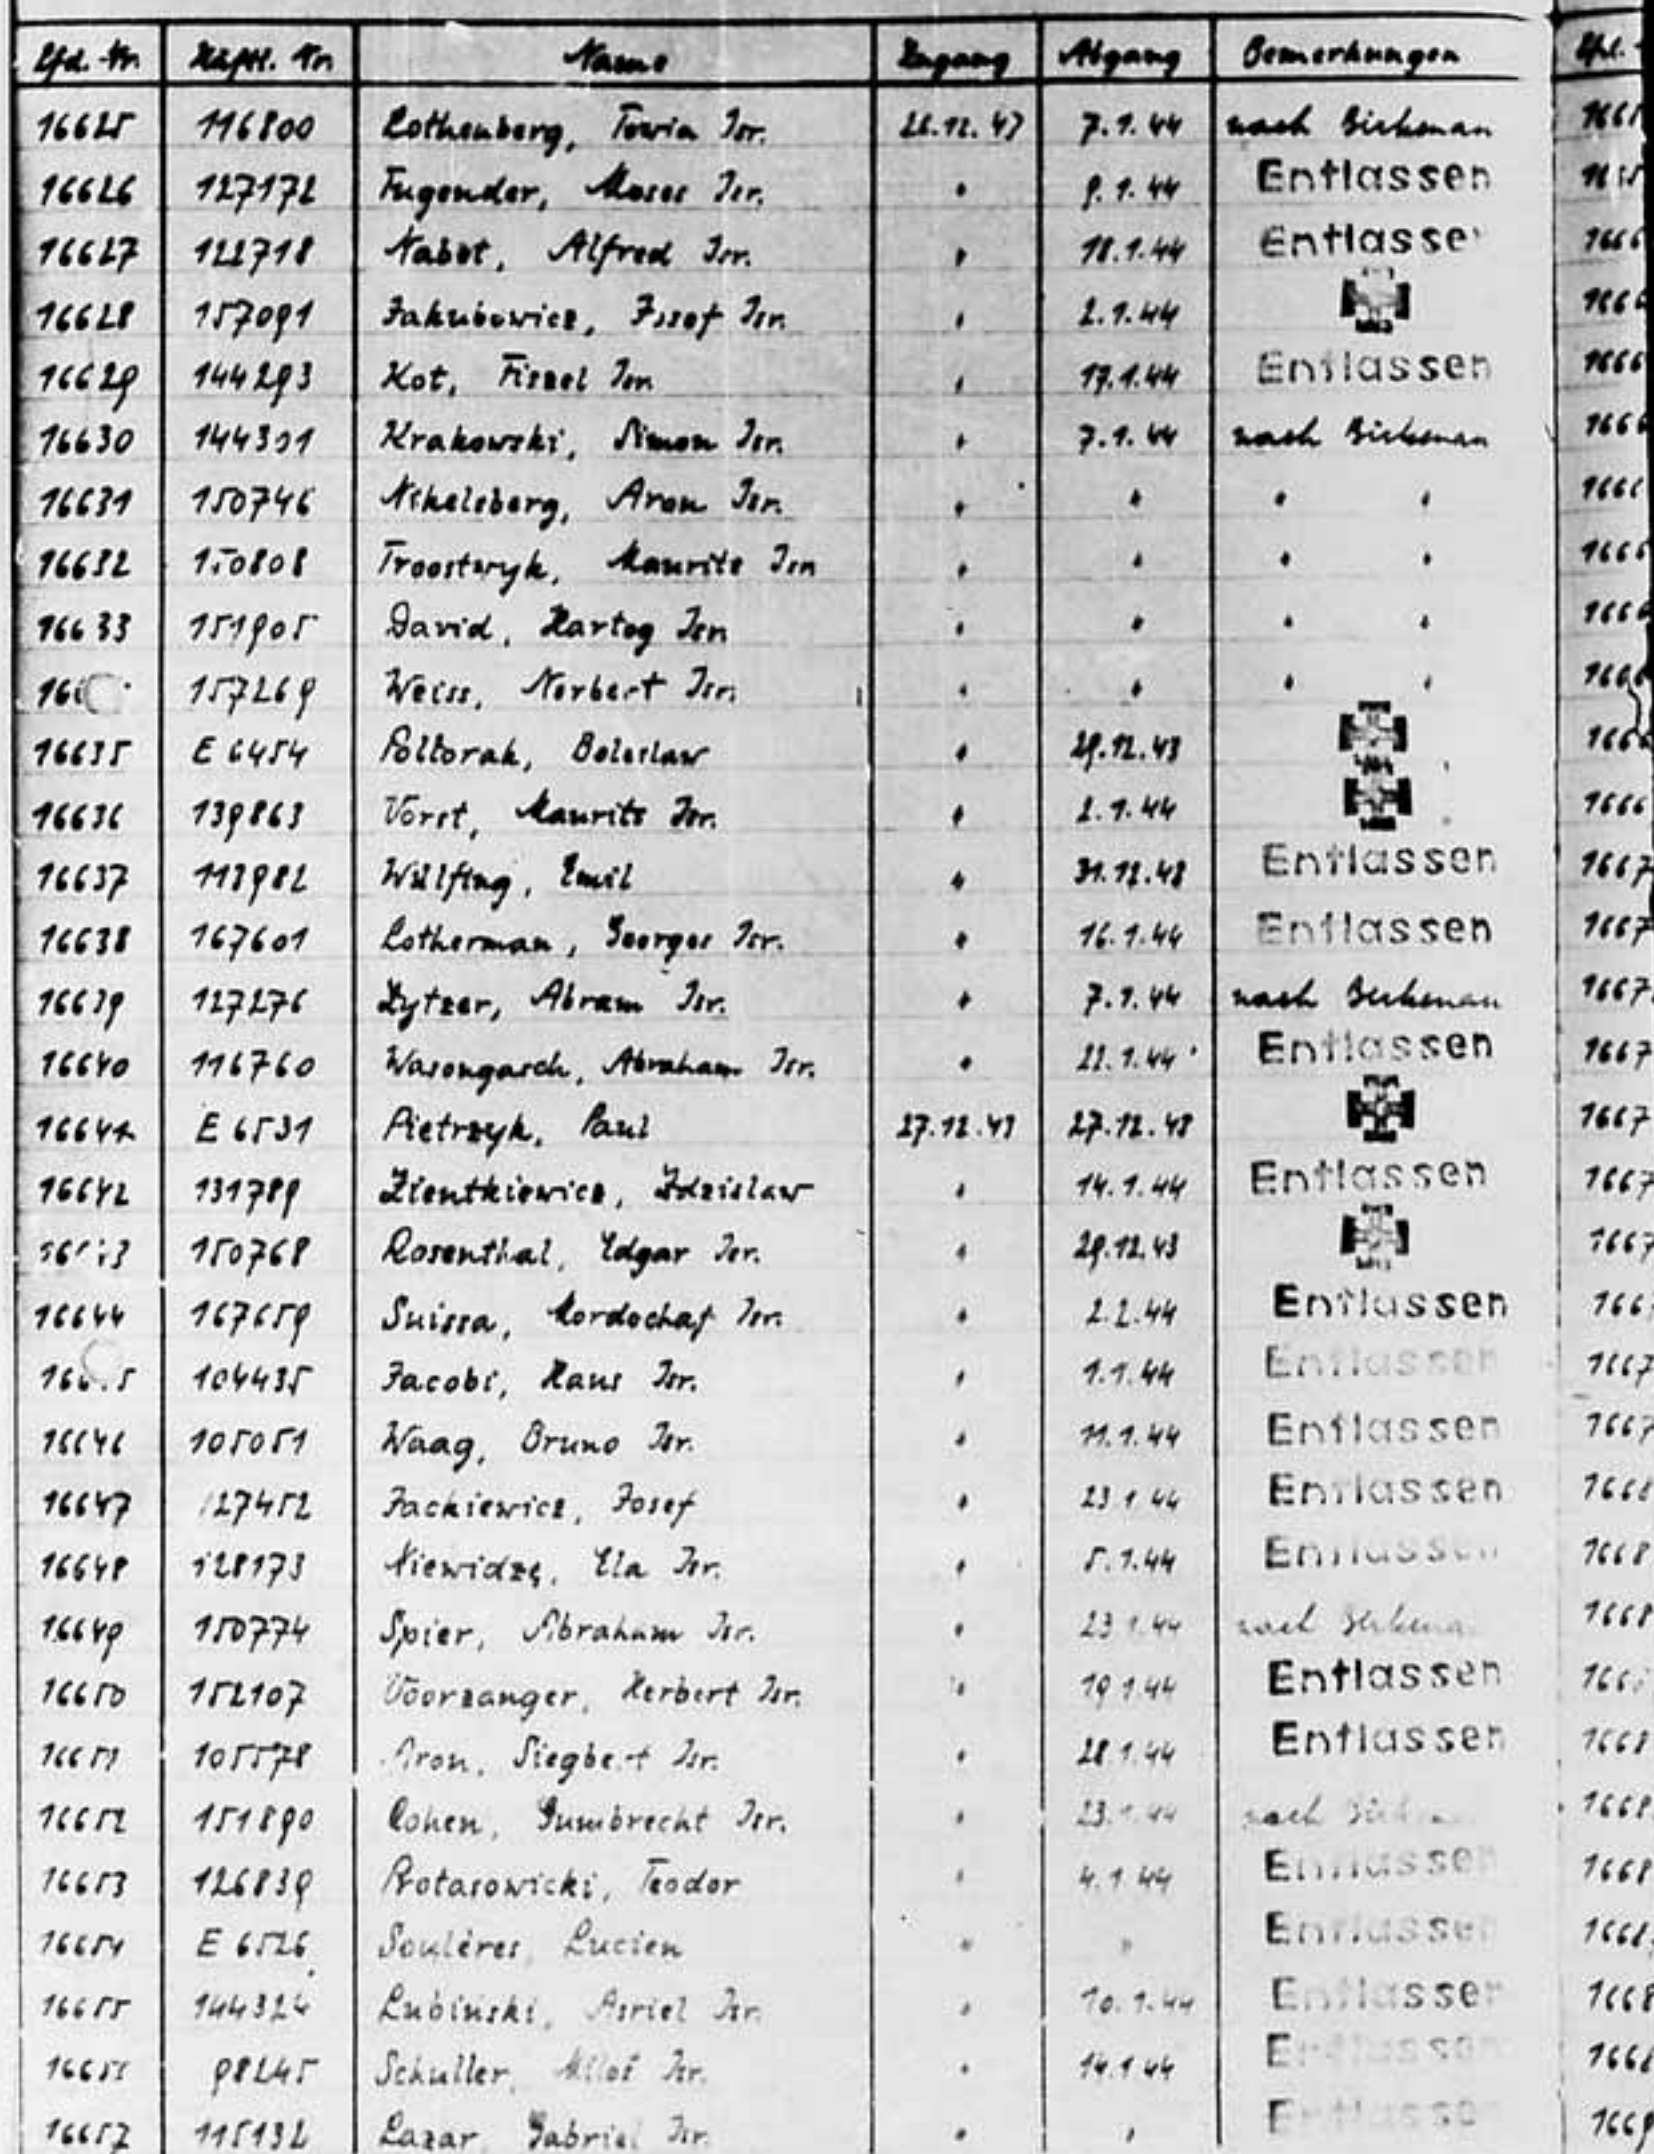 Lfd. Nr. Häftl. Nr. Name Zugang Abgang Bemerkungen Lfd.
16625 116800 Rothenberg, Towia Isr. 26.12.43 7.1.44 nach Birkenau
16626 127172 Fugender, Moses Isr. " 9.1.44 Entlassen
16627 122718 Nabot, Alfred Isr. " 18.1.44 Entlassen
16628 157091 Jakubowicz, Josef Isr. " 2.1.44
16629 144293 Kot, Fiszel Isr. " 17.1.44 Entlassen
16630 144301 Krakowski, Simon Isr. " 7.1.44 nach Birkenau
16631 150746 Nekelsberg, Aron Isr. " " " "
16632 150808 Troostwyk, Maurits Isr. " " " "
16633 151905 David, Hartog Isr. " " " "
157269 Weiss, Norbert Isr. " " " "
16635 E 6454 Poltorak, Boleslaw " 29.12.43
16636 139863 Vorst, Maurits Isr. " 2.1.44
16637 113982 Wülfing, Emil " 31.12.43 Entlassen
16638 167601 Lotherman, Georges Isr. " 16.1.44 Entlassen
16639 127276 Zytzer, Abram Isr. " 7.1.44 nach Birkenau
16640 116760 Wasongasch, Abraham Isr. " 22.1.44 Entlassen
16641 E 6531 Pietrzyk, Paul 27.12.43 27.12.43
16642 131789 Zientkiewicz, Zdzislaw " 14.1.44 Entlassen
150768 Rosenthal, Edgar Isr. " 29.12.43
16644 167659 Suissa, Mordochaj Isr. " 2.2.44 Entlassen
104435 Jacobi, Hans Isr. " 1.1.44 Entlassen
16646 105051 Waag, Bruno Isr. " 11.1.44 Entlassen
16647 127452 Jackiewicz, Josef " 23.1.44 Entlassen
16648 128173 Niewidzę, Ela Isr. " 5.1.44 Entlassen
16649 150774 Spier, Abraham Isr. " 23.1.44 nach Birkenau
16650 152107 Voorzanger, Herbert Isr. " 19.1.44 Entlassen
16651 105578 Aron, Siegbert Isr. " 28.1.44 Entlassen
16652 151890 Cohen, Gumbrecht Isr. " 23.1.44 nach
16653 126839 Protasowicki, Teodor " 4.1.44 Entlassen
16654 E 6526 Soulères, Lucien " " Entlassen
16655 144324 Lubiński, Asriel Isr. " 10.1.44 Entlassen
16656 98245 Schuller, Miloš Isr. " 14.1.44 Entlassen
16657 115132 Lazar, Gabriel Isr. " " Entlassen